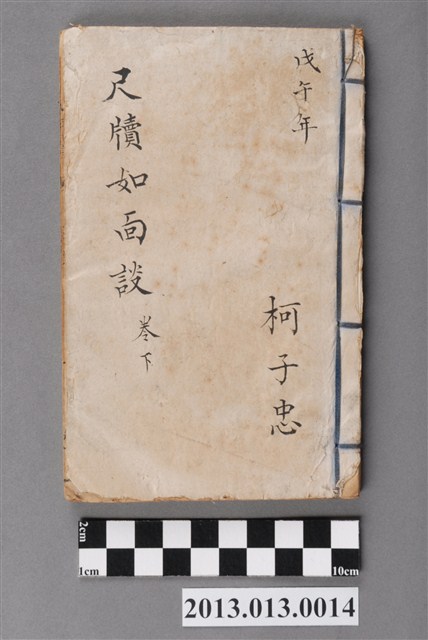 戊午年
柯子忠
尺牘如面談
卷下
2cm
1cm
10cm
2013.013.0014